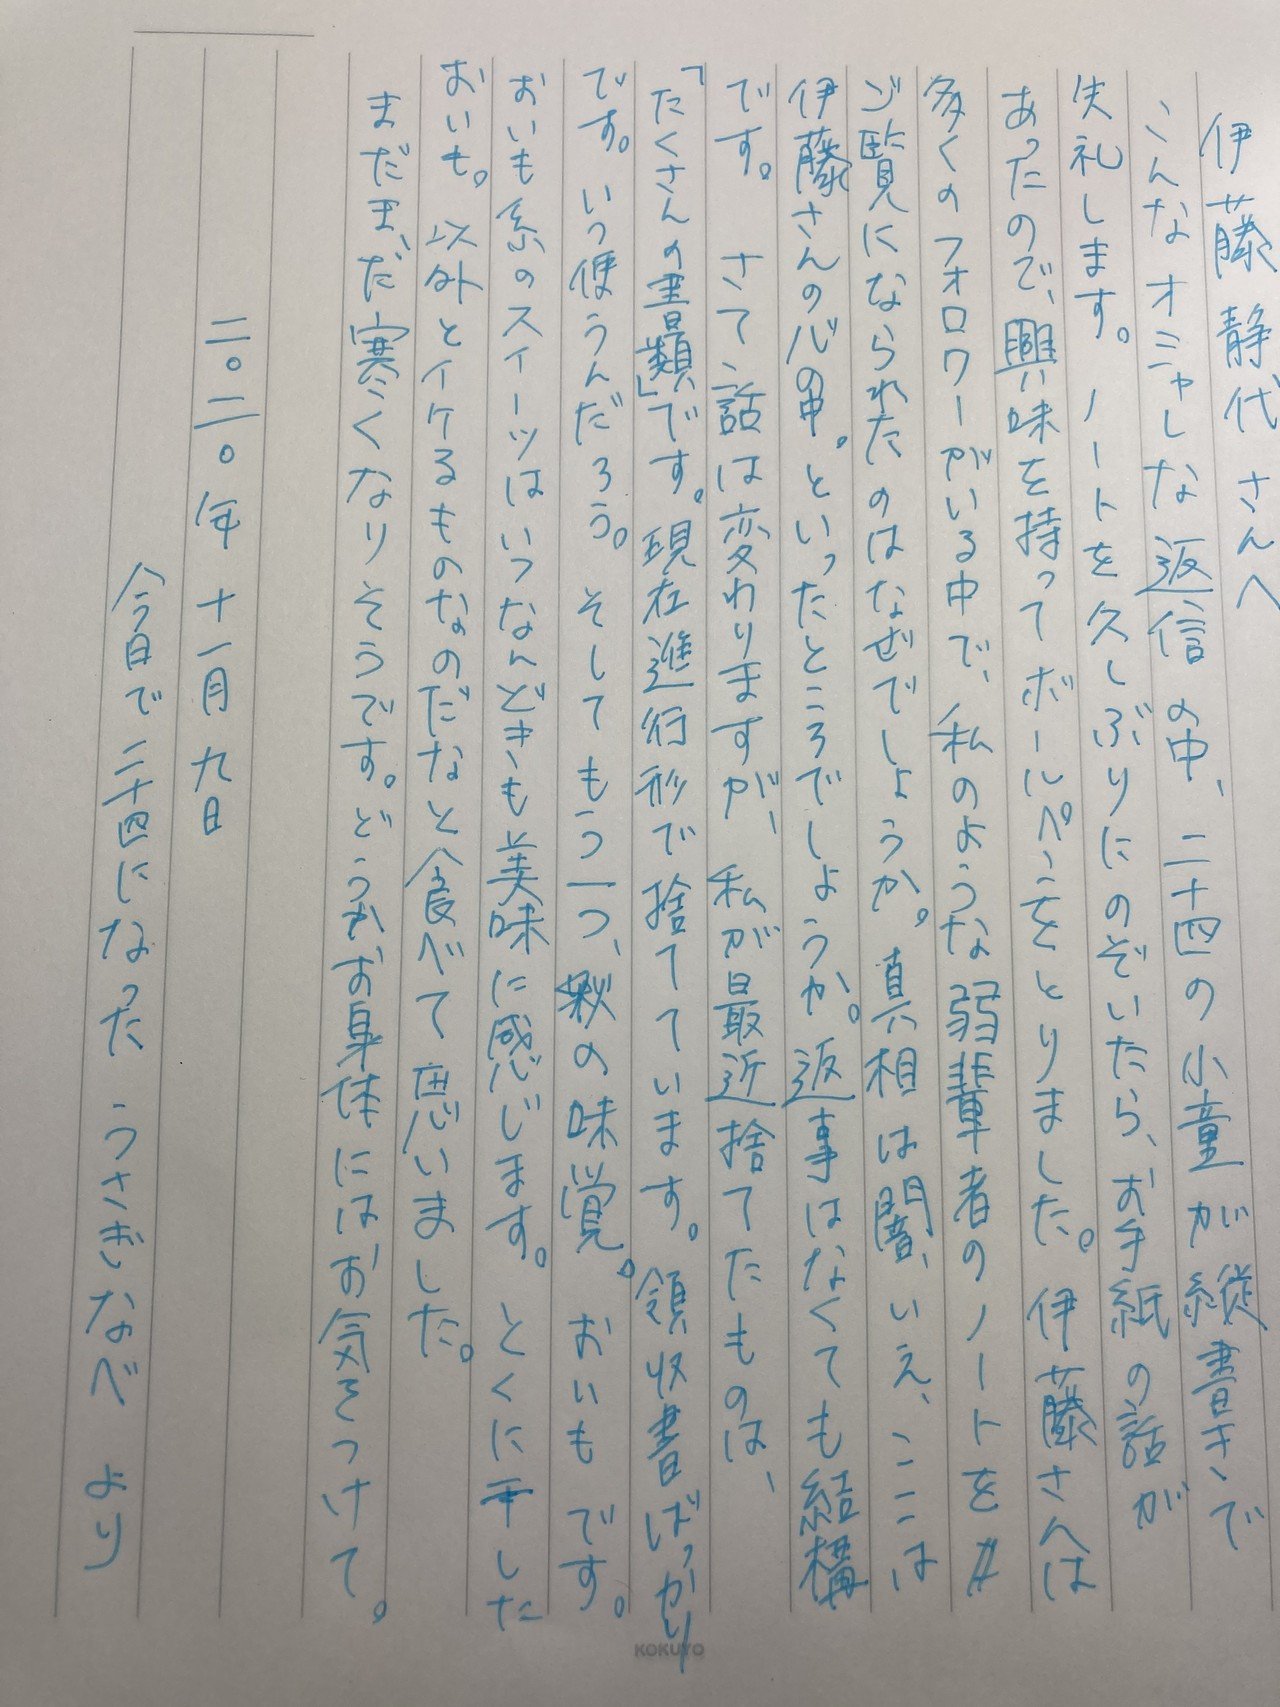 伊藤静代さんへ
こんなオシャレな返信の中、二十四の小童が縦書きで
失礼します。ノートを久しぶりにのぞいたら、お手紙の話が
あったので、興味を持ってボールペンをとりました。伊藤さんは
多くのフォロワーがいる中で、私のような弱輩者のノートを
ご覧になられたのはなぜでしょうか。真相は闇、いえ、ここは
伊藤さんの心の中。といったところでしょうか。返事はなくても結構
です。さて、話は変わりますが、私が最近捨てたものは、
「たくさんの書類」です。現在進行形で捨てています。領収書ばっかり
です。いつ使うんだろう。そしてもう一つ、秋の味覚。おいもです。
おいも系のスイーツはいつなんどきも美味に感じます。とくに干した
おいも。以外とイケるものなのだなと食べて思いました。
まだまだ寒くなりそうです。どうかお身体にはお気をつけて。
二〇二〇年十一月九日
今日で二十四になったうさぎなべより
KOKUYO